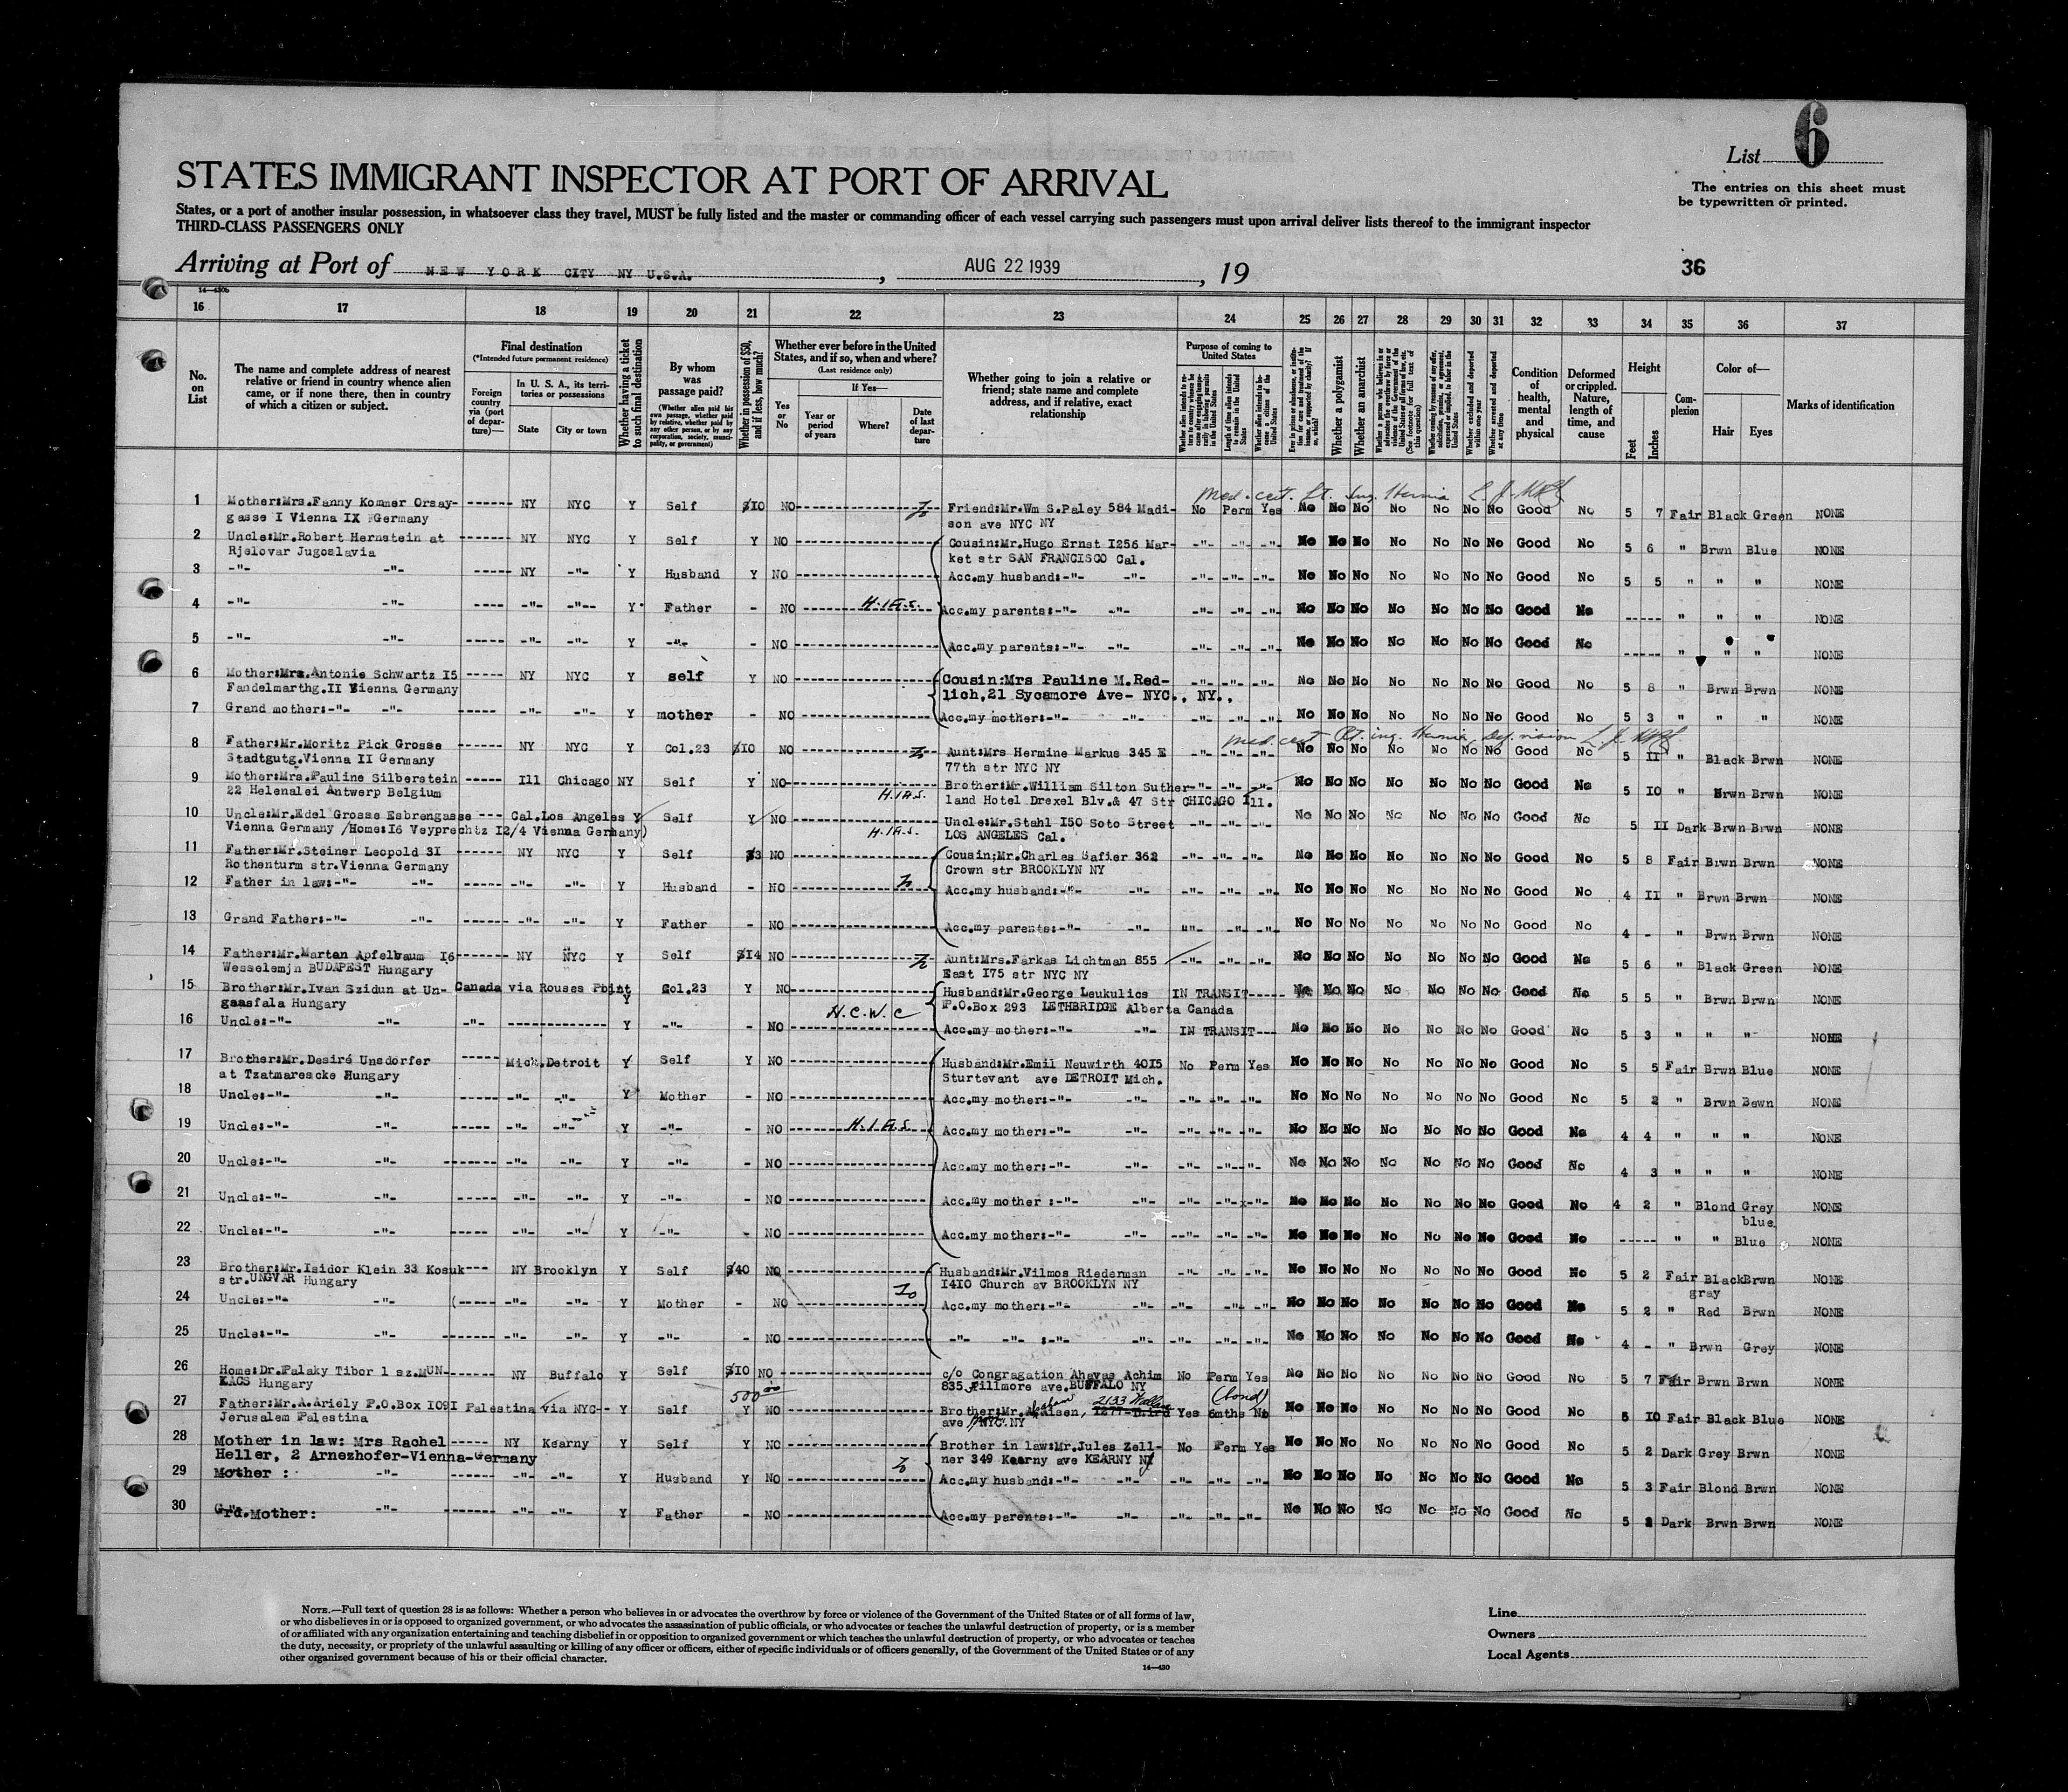 List 6
The entries on this sheet must
be typewritten or printed.
STATES IMMIGRANT INSPECTOR AT PORT OF ARRIVAL
States, or a port of another insular possession, in whatsoever class they travel, MUST be fully listed and the master or commanding officer of each vessel carrying such passengers must upon arrival deliver lists thereof to the immigrant inspector
THIRD-CLASS PASSENGERS ONLY
Arriving at Port of NEW YORK CITY NY U.S.A., AUG 22 1939, 19
36
14—430b
16 17 18 19 20 21 22 23 24 25 26 27 28 29 30 31 32 33 34 35 36 37
No. on List
The name and complete address of nearest relative or friend in country whence alien came, or if none there, then in country of which a citizen or subject.
Final destination
(*Intended future permanent residence)
Foreign country via (port of departure)—
In U. S. A., its territories or possessions
State
City or town
Whether having a ticket to such final destination
By whom was passage paid?
(Whether alien paid his own passage, whether paid by relative, whether paid by any other person, or by any corporation, society, municipality, or government)
Whether in possession of $50, and if less, how much?
Whether ever before in the United States, and if so, when and where?
(Last residence only)
Yes or No
If Yes—
Year or period of years
Where?
Date of last departure
Whether going to join a relative or friend; state name and complete address, and if relative, exact relationship
Purpose of coming to United States
Whether a polygamist
Whether an anarchist
Condition of health, mental and physical
Deformed or crippled. Nature, length of time, and cause
Height
Feet
Inches
Complexion
Color of—
Hair
Eyes
Marks of identification
Med. cert. Lt. Ing. Hernia
1 Mother:Mrs.Fanny Kommer Orsay- ------ NY NYC Y Self $10 NO Friend:Mr.Wm S.Paley 584 Madi- No Perm Yes No No No No No No No Good No 5 7 Fair Black Green NONE
gasse I Vienna IX Germany son ave NYC NY
2 Uncle:Mr.Robert Hernstein at ------ NY NYC Y Self Y NO Cousin:Mr.Hugo Ernst I256 Mar- -"- -"- -"- No No No No No No No Good No 5 6 " Brwn Blue NONE
Rjelovar Jugoslavia ket str SAN FRANCISCO Cal.
3 -"- -"- ----- NY -"- Y Husband Y NO Acc.my husband:-"- -"- -"- -"- -"- No No No No No No No Good No 5 5 " " " NONE
4 -"- -"- ---- -"- -"-- Y Father - NO H.I.a.s. Acc.my parents:-"- -"- -"- -"- -"- No No No No No No No Good No ----- " " " NONE
5 -"- -"- ----- -"- -"- Y -"- - NO Acc.my parents:-"- -"- -"- -"- -"- No No No No No No No Good No ----- " " " NONE
6 Mother:Mrs.Antonie Schwartz I5 ----- NY NYC Y self Y NO Cousin:Mrs Pauline M.Red- -"- -"- -"- No No No No No No No Good No 5 8 " Brwn Brwn NONE
Fandelmarthg.II Vienna Germany lich,21 Sycamore Ave- NYC., NY.,
7 Grand mother:-"- -"- ----- -"- -"- Y mother - NO Acc.my mother:-"- -"- -"- -"- -"- No No No No No No No Good No 5 3 " " " NONE
Med. cert Rt. ing. Hernia, Def. vision
8 Father:Mr.Moritz Pick Grosse ------ NY NYC Y Col.23 $10 NO Aunt:Mrs Hermine Markus 345 E -"- -"- -"- No No No No No No No Good No 5 II " Black Brwn NONE
Stadgutg.Vienna II Germany 77th str NYC NY
9 Mother:Mrs.Pauline Silberstein ----- Ill Chicago NY Self Y NO Brother:Mr.William Silton Suther- -"- -"- -"- No No No No No No No Good No 5 IO " Brwn Brwn NONE
22 Helenalei Antwerp Belgium H.I.A.S. land Hotel Drexel Blv.& 47 Str CHICAGO Ill.
10 Uncle:Mr.Edel Grosse Esbrengasse --- Cal.Los Angeles Y Self Y NO Uncle:Mr.Stahl I50 Soto Street -"- -"- -"- No No No No No No No Good No 5 II Dark Brwn Brwn NONE
Vienna Germany /Home:I6 Veyprechtz I2/4 Vienna Germany) H.I.A.S. LOS ANGELES Cal.
11 Father:Mr.Steiner Leopold 3I ----- NY NYC Y Self $3 NO Cousin;Mr.Charles Safier 362 -"- -"- -"- No No No No No No No Good No 5 8 Fair Brwn Brwn NONE
Rothenturm str.Vienna Germany Crown str BROOKLYN NY
12 Father in law:-"- -"- ------ -"- -"- Y Husband - NO Acc.my husband:-"- -"- -"- -"- -"- No No No No No No No Good No 4 II " Brwn Brwn NONE
13 Grand Father:-"- -"- ------ -"- -"- Y Father - NO Acc.my parents:-"- -"- "- -"- -"- No No No No No No No Good No 4 - " Brwn Brwn NONE
14 Father:Mr.Marten Apfelbaum I6 ------- NY NYC Y Self $14 NO Aunt:Mrs.Farkas Lichtman 855 -"- -"- -"- No No No No No No No Good No 5 6 " Black Green NONE
Wesselemjn BUDAPEST Hungary East I75 str NYC NY
15 Brother:Mr.Ivan Szidun at Un- Canada via Rouses Point Y Col.23 Y NO Husband:Mr.George Leukulics IN TRANSIT----- No No No No No No No Good No 5 5 " Brwn Brwn NONE
gaasfala Hungary H.C.W.C P.O.Box 293 LETHBRIDGE Alberta Canada
16 Uncle:-"- -"- -"- ------------ Y -"- - NO Acc.my mother:-"- -"- IN TRANSIT--- No No No No No No No Good No 5 3 " " " NONE
17 Brother:Mr.Desiré Unsdorfer ----- Mich.Detroit Y Self Y NO Husband:Mr.Emil Neuwirth 40I5 No Perm Yes No No No No No No No Good No 5 5 Fair Brwn Blue NONE
at Tzatmarescke Hungary Sturtevant ave DETROIT Mich.
18 Uncle:-"- -"- ----- -"- -"- Y Mother - NO Acc.my mother:-"- -"- -"- -"- -"- No No No No No No No Good No 5 2 " Brwn Bewn NONE
19 Uncle:-"- -"- ----- -"- -"- Y -"- - NO H.I.A.S. Acc.my mother:-"- -"- -"- -"- -"- No No No No No No No Good No 4 4 " " " NONE
20 Uncle:-"- -"- ------- -"- -"- Y -"- - NO Acc.my mother:-"- -"- -"- -"- -"- No No No No No No No Good No 4 3 " " " NONE
21 Uncle:-"- -"- ----- -"- -"- Y -"- - NO Acc.my mother :-"- -"- -"- -"-x-"- No No No No No No No Good No 4 2 " Blond Grey NONE
blue
22 Uncle:-"- -"- ----- -"- -"- Y -"- - NO Acc.my mother:-"- -"- --"- -"- -"- No No No No No No No Good No ----- " " Blue NONE
23 Brother:Mr.Isidor Klein 33 Kosuk--- NY Brooklyn Y Self $40 NO Husband:Mr.Vilmos Riederman -"- -"- -"- No No No No No No No Good No 5 2 Fair BlackBrwn NONE
str.UNGVAR Hungary I4IO Church av BROOKLYN NY gray
24 Uncle:-"- -"- (----- -"- -"- Y Mother - NO Acc.my mother:-"- -"- -"- -"- -"- No No No No No No No Good No 5 2 " Red Brwn NONE
25 Uncle:-"- -"- ------- -"- -"- Y -"- - NO -"- -"- :-"- -"- -"- -"- -"- No No No No No No No Good No 4 - " Brwn Grey NONE
26 Home:Dr.Palaky Tibor 1 sz.MUN----- NY Buffalo Y Self $10 NO c/o Congragation Ahavas Achim No Perm Yes No No No No No No No Good No 5 7 Fair Brwn Brwn NONE
KACS Hungary 500.00 835 Fillmore ave.BUFFALO NY (bond)
27 Father:Mr.A.Ariely P.O.Box IO9I Palestina via NYC-- Y Self Y NO Brother:Mr. 2133 I277 Third Yes 6mths No No No No No No No No Good No 5 IO Fair Black Blue NONE
Jerusalem Palestina ave NYC NY
28 Mother in law: Mrs Rachel ----- NY Kearny Y Self Y NO Brother in law:Mr.Jules Zell- No Perm Yes No No No No No No No Good No 5 2 Dark Grey Brwn NONE
Heller, 2 Arnezhofer-Vienna-Germany ner 349 Kearny ave KEARNY NJ
29 Mother : -"- ------ -"- -"- Y Husband Y NO Acc.my husband:-"- -"- -"- -"- -"- No No No No No No No Good No 5 3 Fair Blond Brwn NONE
30 Grd.Mother: -"- ------ -"- -"- Y Father - NO Acc.my parents:-"- -"- -"- -"- -"- No No No No No No No Good No 5 2 Dark Brwn Brwn NONE
NOTE.—Full text of question 28 is as follows: Whether a person who believes in or advocates the overthrow by force or violence of the Government of the United States or of all forms of law,
or who disbelieves in or is opposed to organized government, or who advocates the assassination of public officials, or who advocates or teaches the unlawful destruction of property, or is a member
of or affiliated with any organization entertaining and teaching disbelief in or opposition to organized government or which teaches the unlawful destruction of property, or who advocates or teaches
the duty, necessity, or propriety of the unlawful assaulting or killing of any officer or officers, either of specific individuals or of officers generally, of the Government of the United States or of any
other organized government because of his or their official character.
14—430
Line
Owners
Local Agents